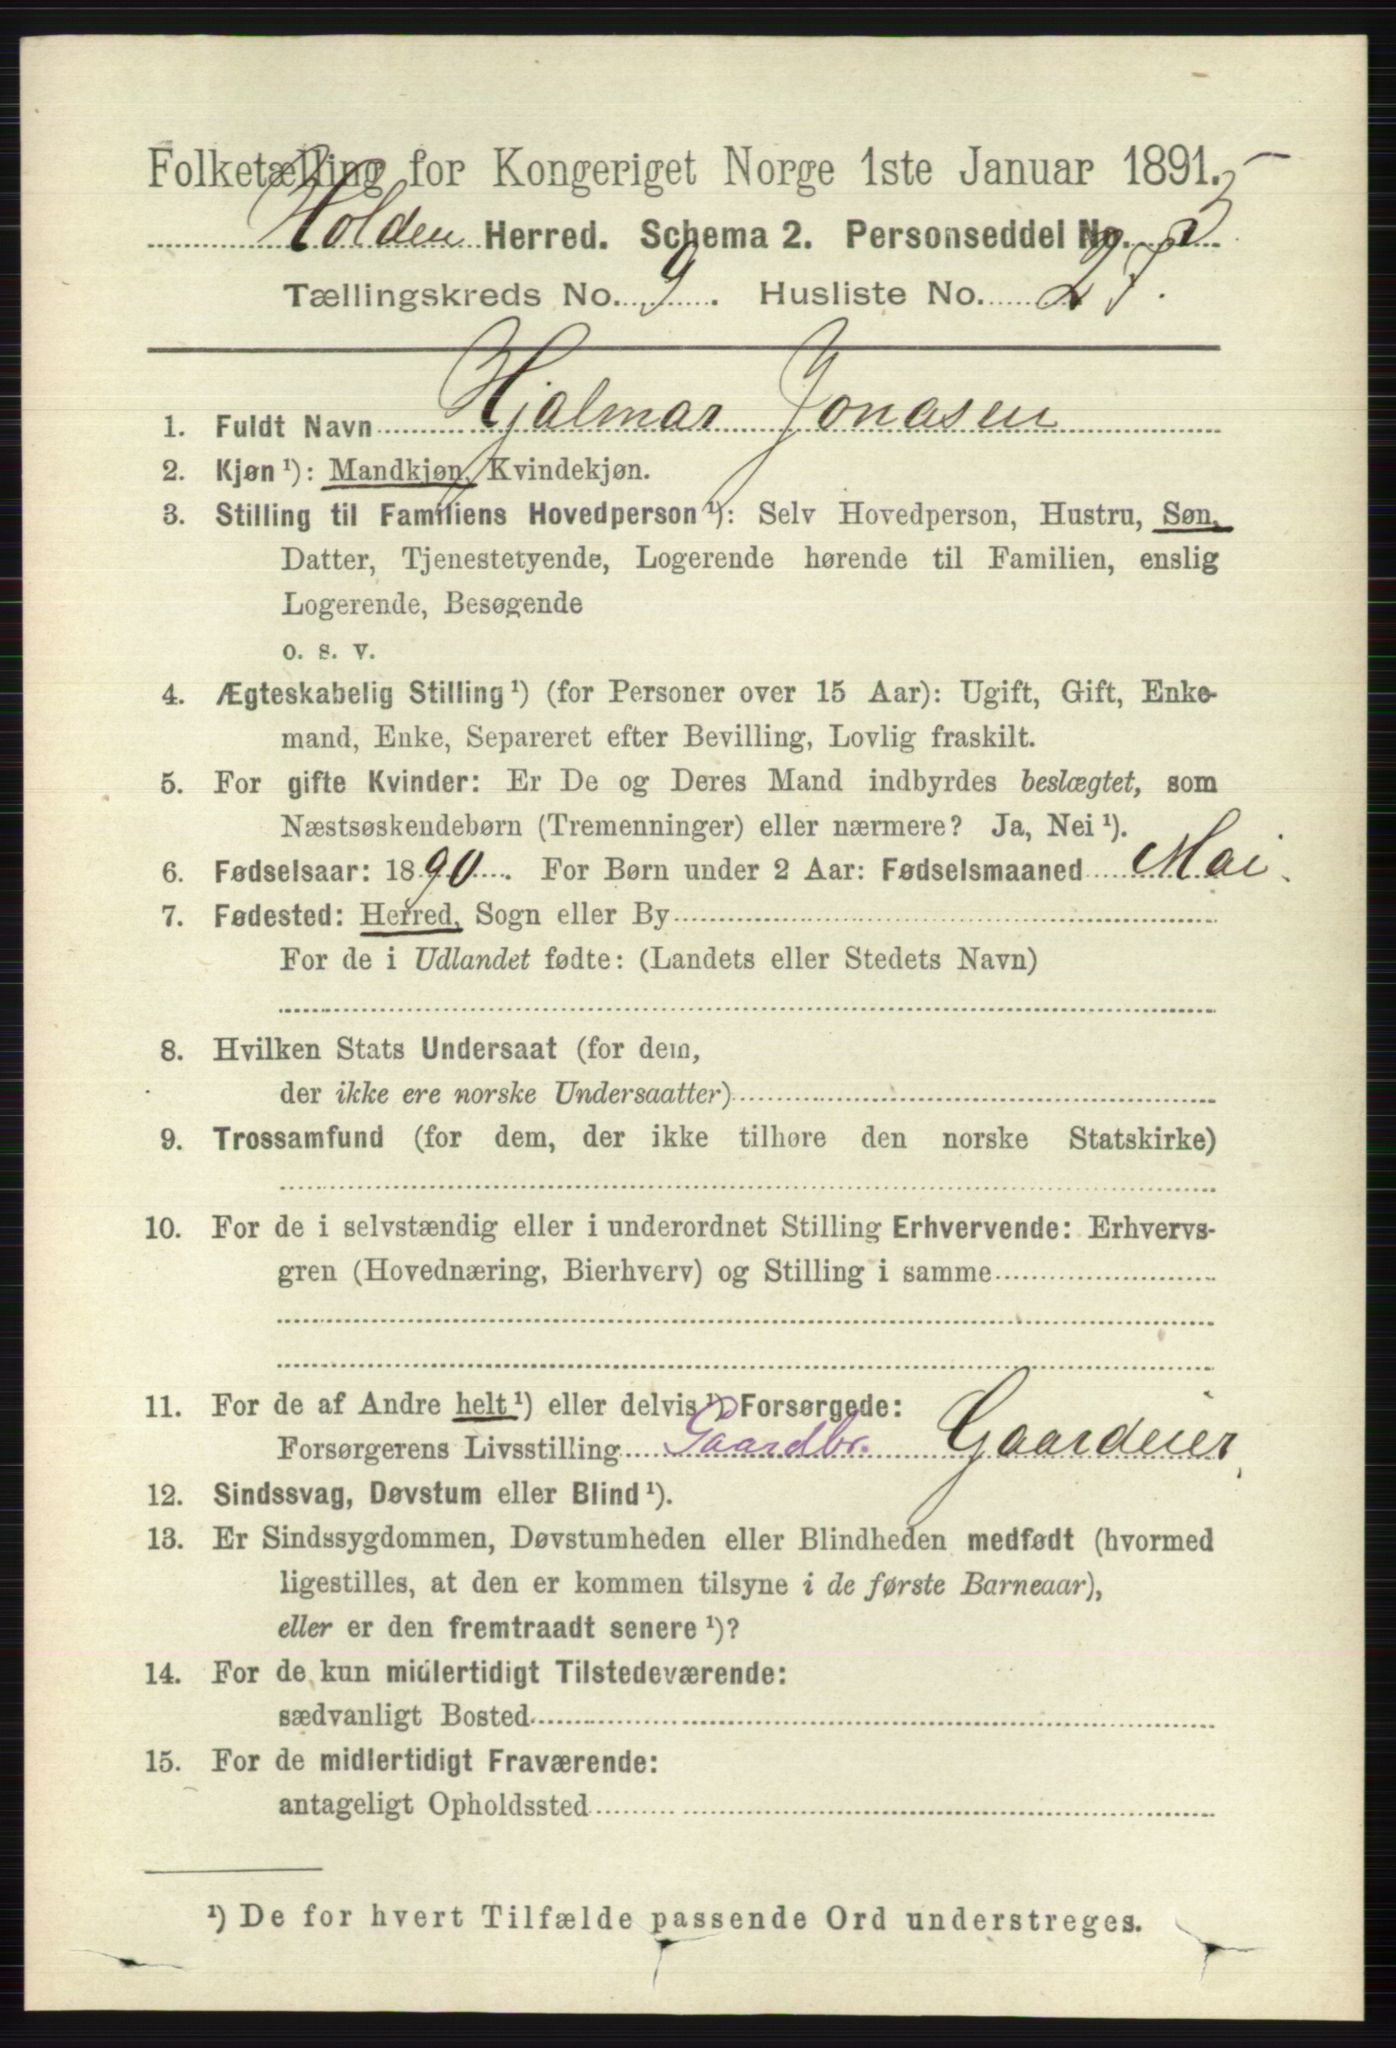 Folketælling for Kongeriget Norge 1ste Januar 1891.
Holden Herred. Schema 2. Personseddel No. 5
Tællingskreds No. 9. Husliste No. 27.
1. Fuldt Navn Hjalmar Jonasen
2. Kjøn¹): Mandkjøn, Kvindekjøn.
3. Stilling til Familiens Hovedperson¹): Selv Hovedperson, Hustru, Søn,
Datter, Tjenestetyende, Logerende hørende til Familien, enslig
Logerende, Besøgende
o. s. v.
4. Ægteskabelig Stilling¹) (for Personer over 15 Aar): Ugift, Gift, Enke-
mand, Enke, Separeret efter Bevilling, Lovlig fraskilt.
5. For gifte Kvinder: Er De og Deres Mand indbyrdes beslægtet, som
Næstsøskendebørn (Tremenninger) eller nærmere? Ja, Nei¹).
6. Fødselsaar: 1890. For Børn under 2 Aar: Fødselsmaaned Mai.
7. Fødested: Herred, Sogn eller By
For de i Udlandet fødte: (Landets eller Stedets Navn)
8. Hvilken Stats Undersaat (for dem,
der ikke ere norske Undersaatter)
9. Trossamfund (for dem, der ikke tilhøre den norske Statskirke)
10. For de i selvstændig eller i underordnet Stilling Erhvervende: Erhvervs-
gren (Hovednæring, Bierhverv) og Stilling i samme
11. For de af Andre helt¹) eller delvis¹) Forsørgede:
Forsørgerens Livsstilling Gaardbr. Gaardeier,
12. Sindssvag, Døvstum eller Blind¹).
13. Er Sindssygdommen, Døvstumheden eller Blindheden medfødt (hvormed
ligestilles, at den er kommen tilsyne i de første Barneaar),
eller er den fremtraadt senere¹)?
14. For de kun midlertidigt Tilstedeværende:
sædvanligt Bosted
15. For de midlertidigt Fraværende:
antageligt Opholdssted
¹) De for hvert Tilfælde passende Ord understreges.